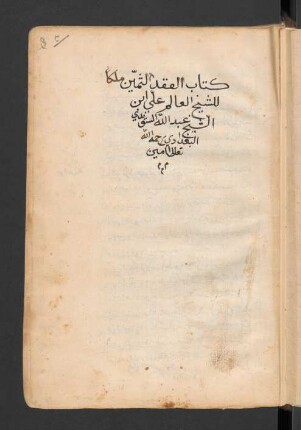 كتاب العقد الثمين ملكا
للشيخ العالم علي ابن
الشيخ عبد الله السويدي
البغدادي رحمه الله
تعالى امين